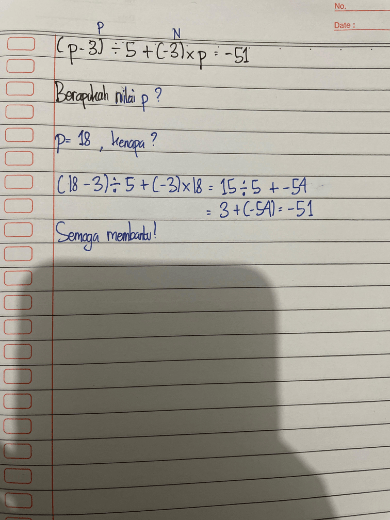 No.
Date :
P N
(p-3) ÷ 5 + (-3) × p = -51
Berapakah nilai p ?
p = 18 , kenapa ?
(18 - 3) ÷ 5 + (-3) × 18 = 15 ÷ 5 + -54
= 3 + (-54) = -51
Semoga membantu!